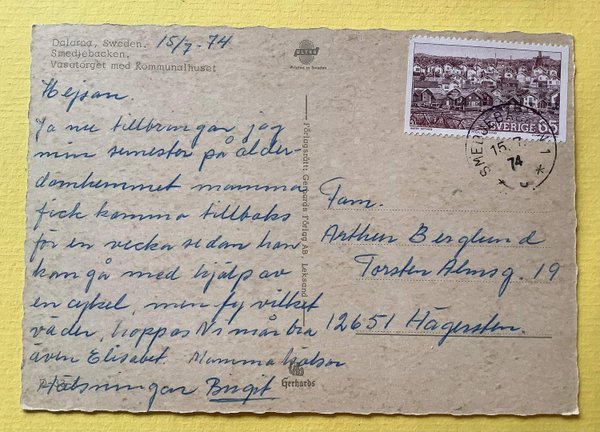 Dalarna, Sweden. 15/7-74
Smedjebacken.
Vasatorget med Kommunalhuset
ULTRA
Printed in Sweden
Hejsan.
Ja nu tillbringar jag
min semester på ålder-
domhemmet mamma
fick komma tillbaks
för en vecka sedan hon
kan gå med hjälp av
en cykel, men fy vilket
väder, hoppas Ni mår bra
även Elisabet. Mamma hälsar
Hälsningar Birgit
Förlagsrätt: Gerhards Förlag AB, Leksand
Gerhards
SVERIGE 65
SMEDJEBACKEN 1
15.7.
74
Fam.
Arthur Berglund
Torsten Almsg. 19
12651 Hägersten.